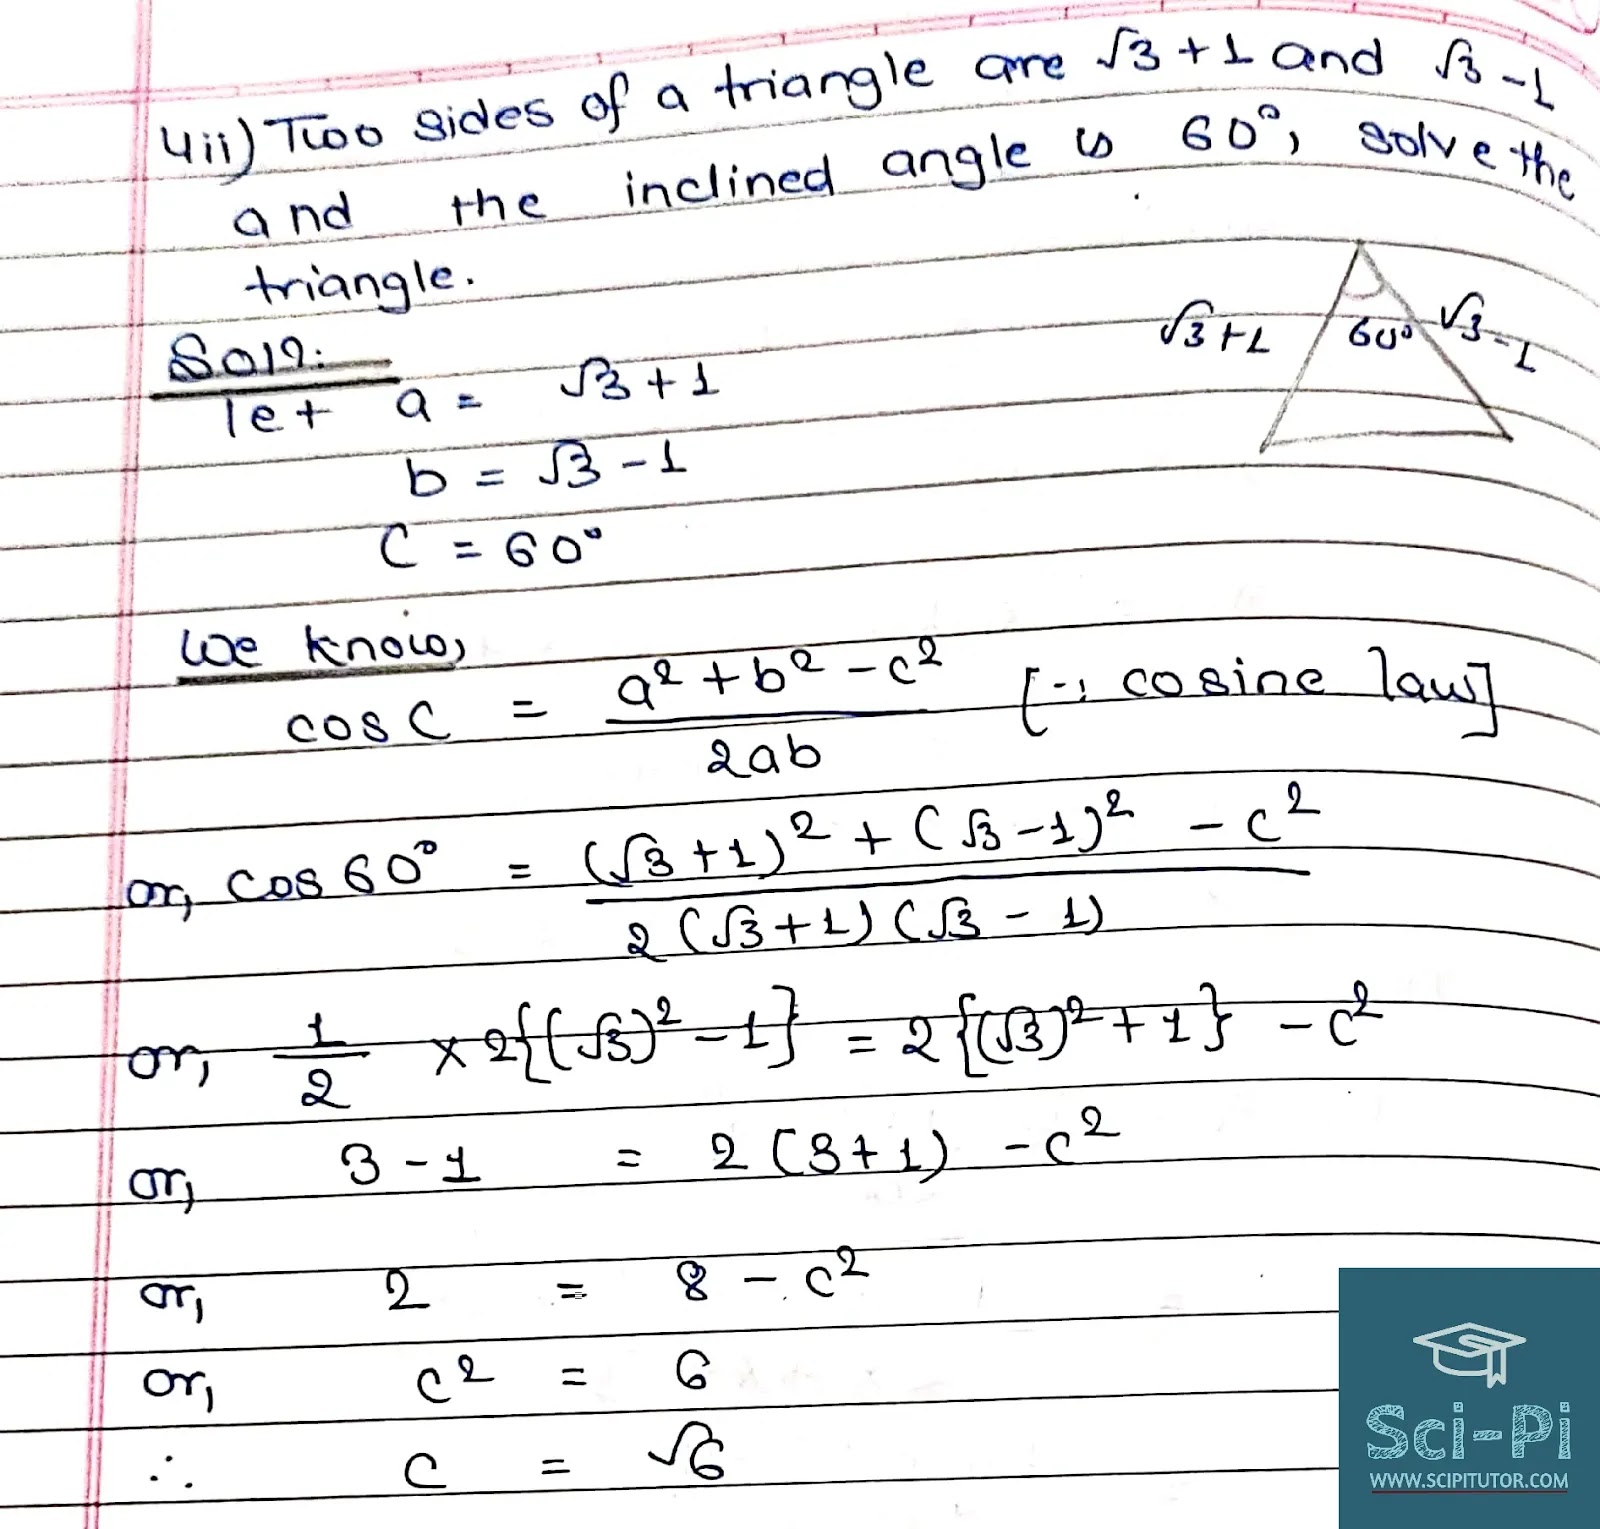 4ii) Two sides of a triangle are √3+1 and √3-1
and the inclined angle is 60°, solve the
triangle.
Soln:
let a = √3+1
b = √3-1
C = 60°
√3+1
60°
√3-1
We know,
cos C = a²+b²-c² / 2ab [∵ cosine law]
or, cos 60° = (√3+1)² + (√3-1)² - c² / 2(√3+1)(√3-1)
or, 1/2 × 2{(√3)²-1} = 2{(√3)²+1} - c²
or, 3-1 = 2(3+1) - c²
or, 2 = 8 - c²
or, c² = 6
∴ c = √6
Sci-Pi
WWW.SCIPITUTOR.COM